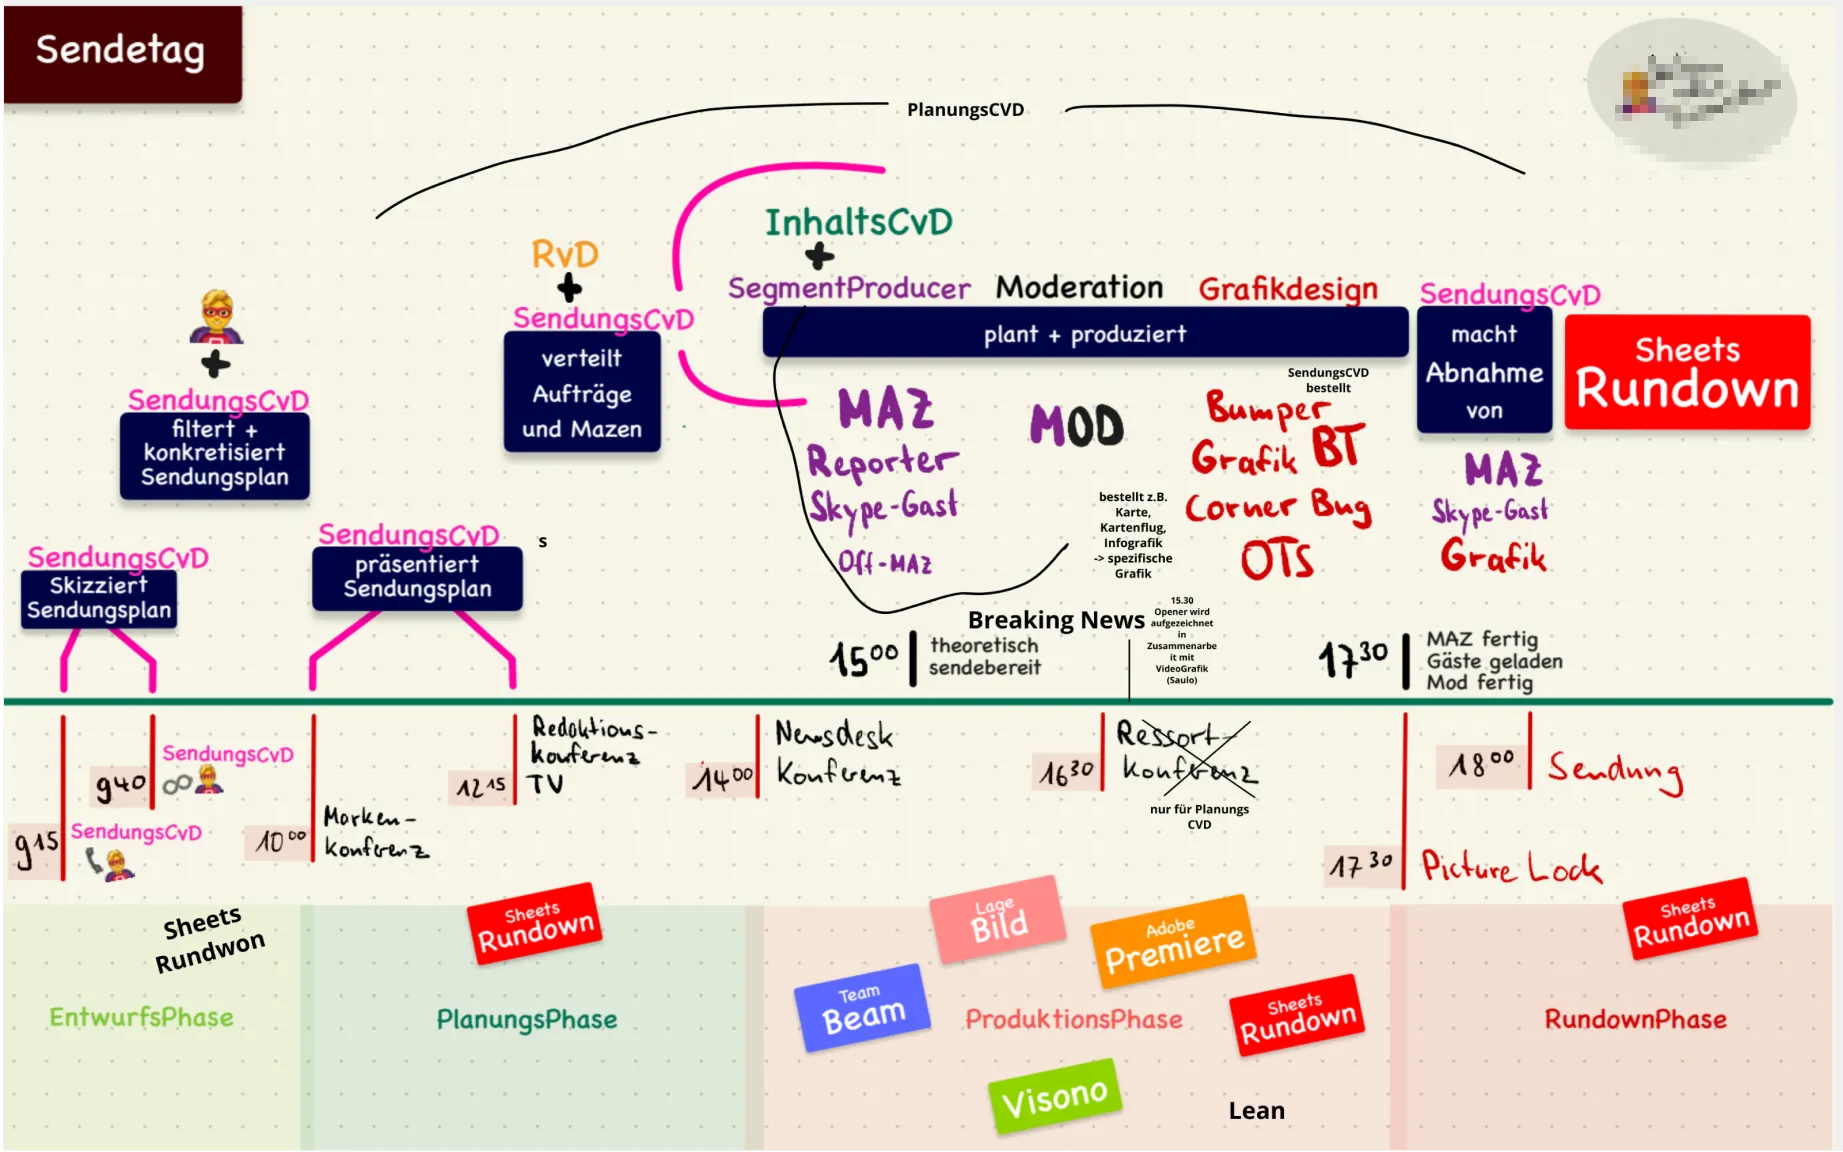 Sendetag
PlanungsCVD
InhaltsCvD
+
SegmentProducer
Moderation
Grafikdesign
plant + produziert
RvD
+
SendungsCvD
verteilt
Aufträge
und Mazen
SendungsCvD
macht
Abnahme
von
Sheets
Rundown
+
SendungsCvD
filtert +
konkretisiert
Sendungsplan
SendungsCvD
präsentiert
Sendungsplan
s
SendungsCvD
Skizziert
Sendungsplan
MAZ
Reporter
Skype-Gast
Off-MAZ
MOD
bestellt z.B.
Karte,
Kartenflug,
Infografik
-> spezifische
Grafik
SendungsCVD
bestellt
Bumper
Grafik BT
Corner Bug
OTs
MAZ
Skype-Gast
Grafik
Breaking News
15.30
Opener wird
aufgezeichnet
in
Zusammenarbe
it mit
VideoGrafik
(Saulo)
15 00
theoretisch
sendebereit
17 30
MAZ fertig
Gäste geladen
Mod fertig
9 15
SendungsCvD
9 40
SendungsCvD
10 00
Marken-
konferenz
12 15
Redaktions-
konferenz
TV
14 00
Newsdesk
Konferenz
16 30
Ressort-
konferenz
nur für Planungs
CVD
17 30
Picture Lock
18 00
Sendung
Sheets
Rundwon
EntwurfsPhase
Sheets
Rundown
PlanungsPhase
Lage
Bild
Adobe
Premiere
Team
Beam
ProduktionsPhase
Sheets
Rundown
Visono
Lean
Sheets
Rundown
RundownPhase